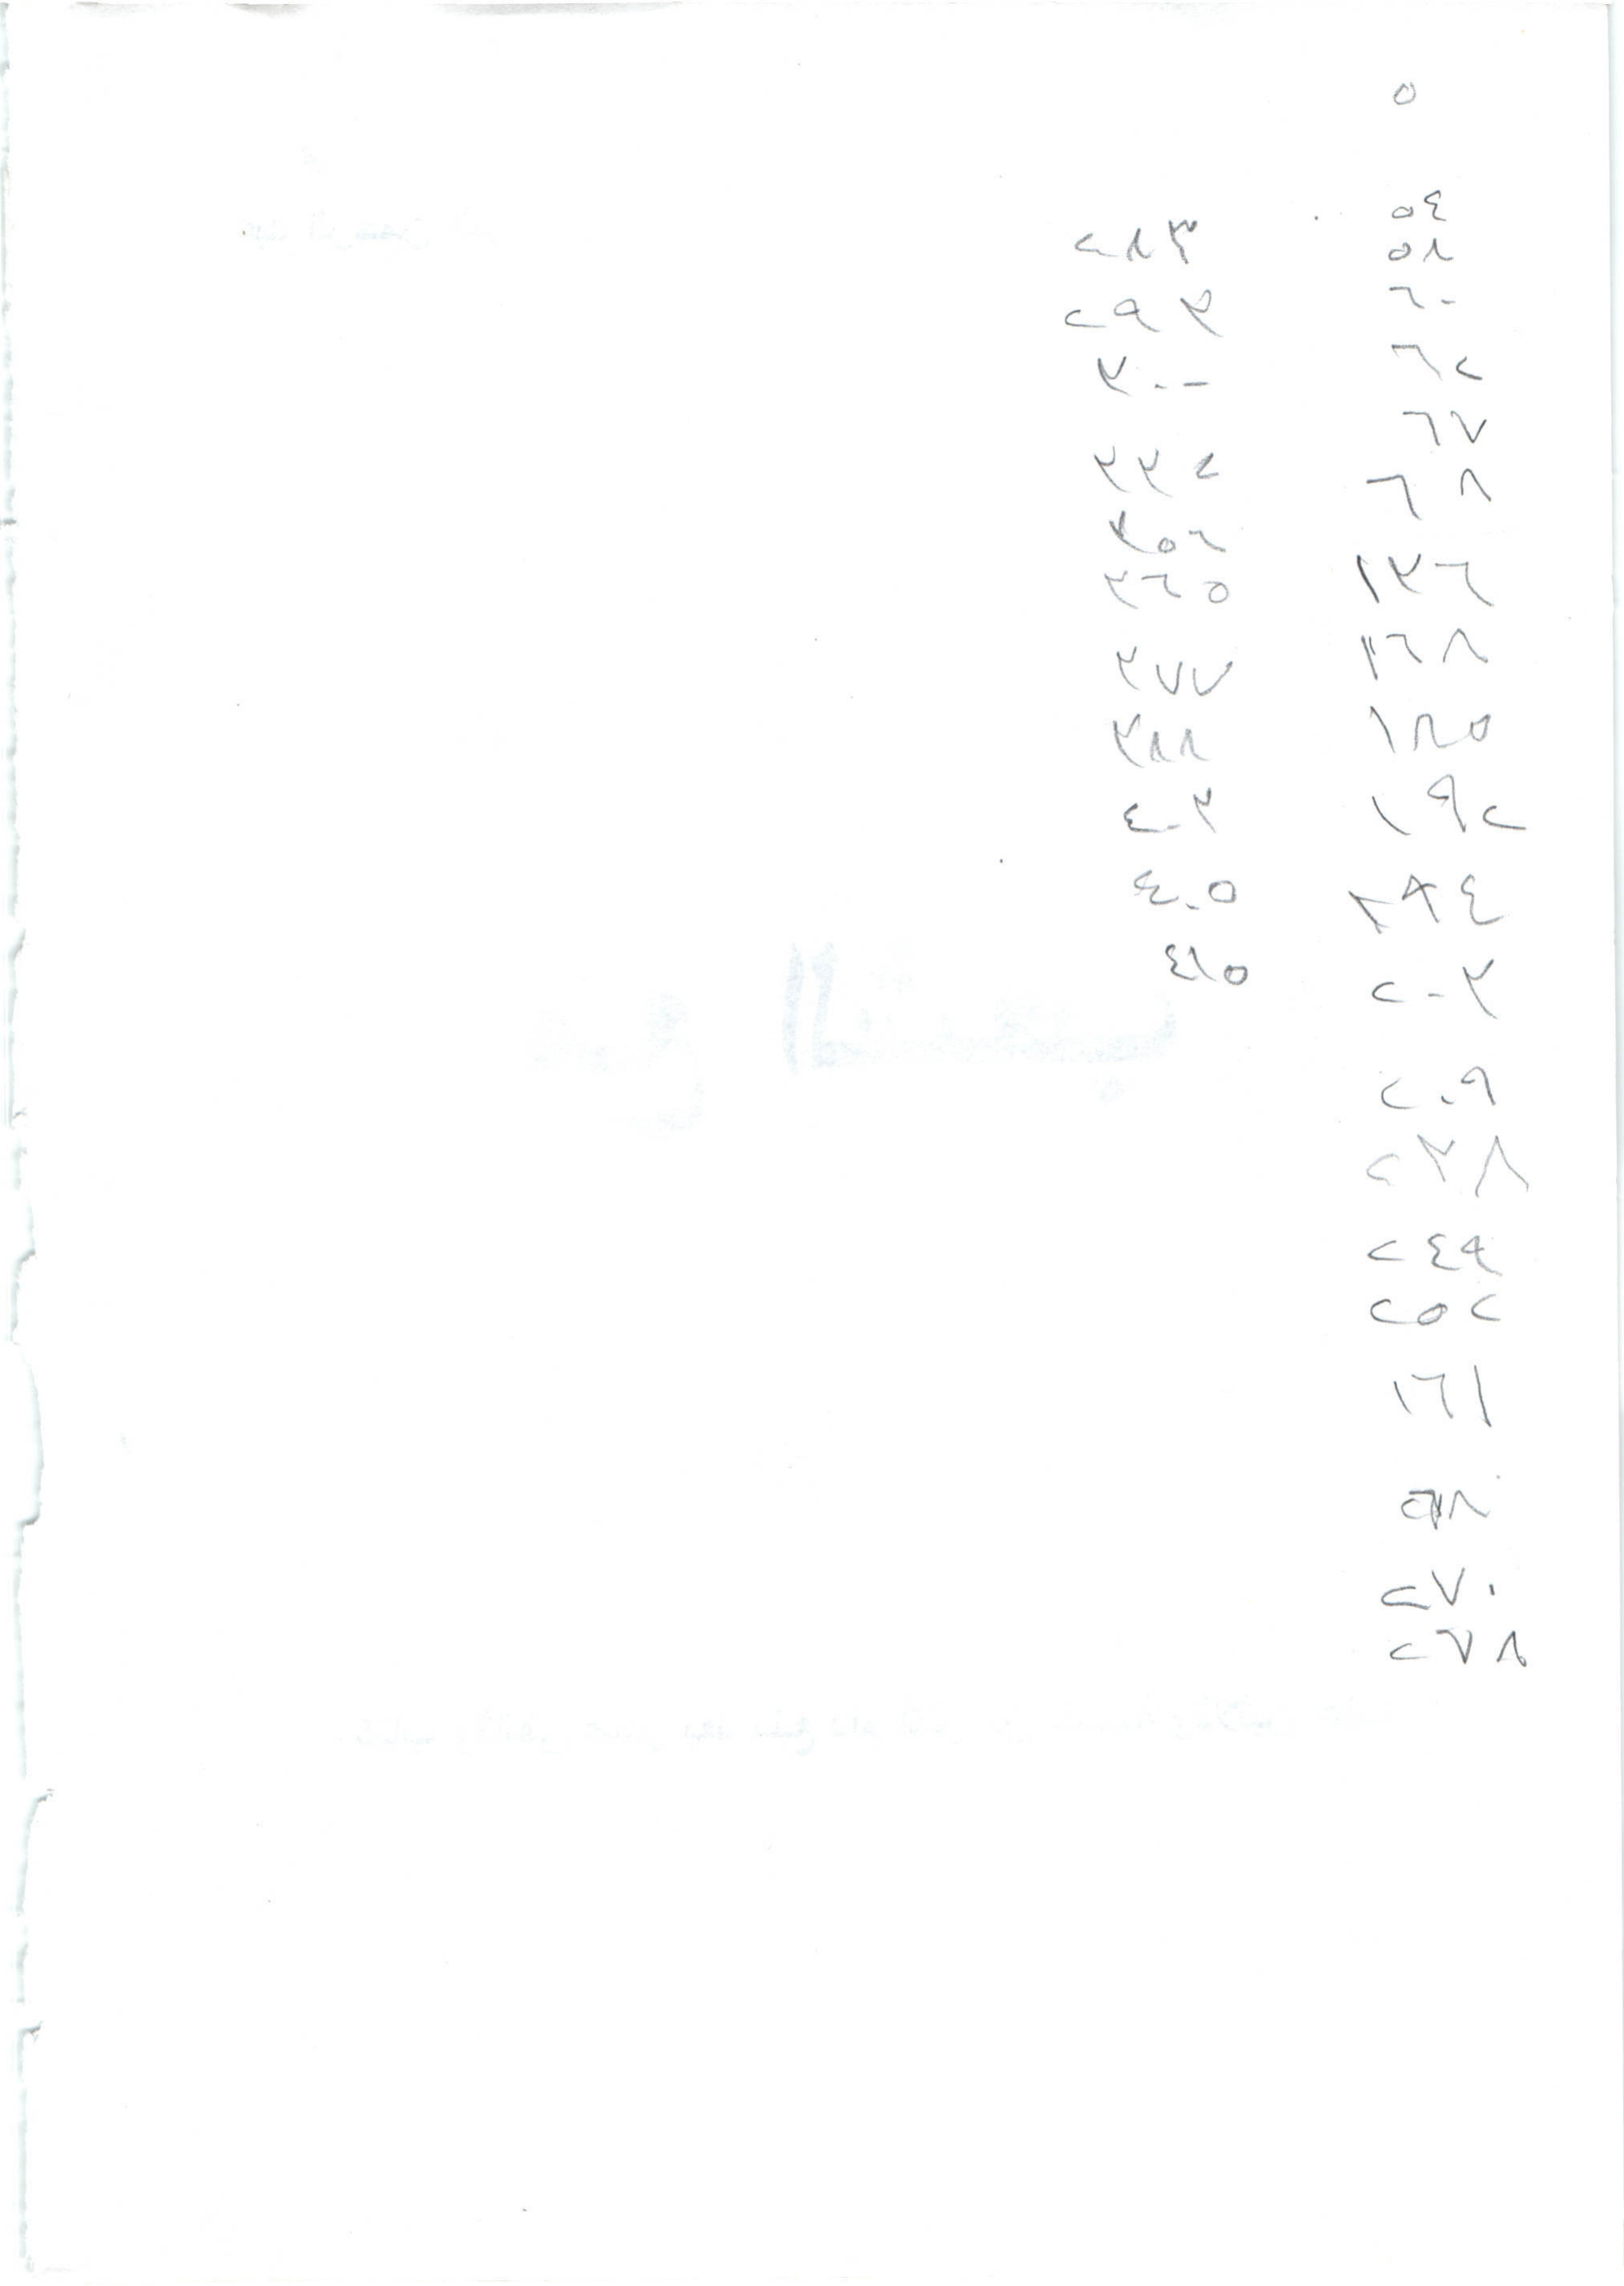 ٥
٥٤
٥٨
٦٠
٦٢
٦٧
٦٨
١٣٦
١٦٨
١٨٥
١٩٢
١٩٤
٢٠٣
٢٠٩
٢٣٨
٢٤٩
٢٥٢
١٦١
٢٦٨
٢٧٠
٢٧٨
٢٨٣
٢٩٣
٣٠٠
٣٣٢
٣٥٦
٣٦٥
٣٧٧
٣٨٨
٤٠٣
٤٠٥
٤١٥